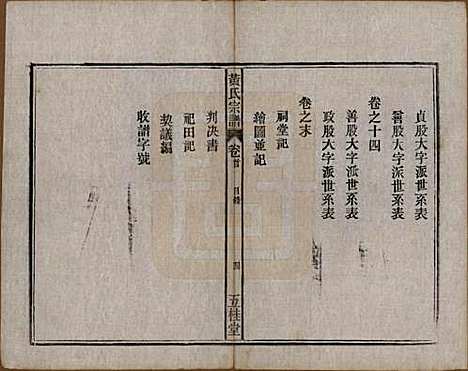 貞股大字派世系表
爵股大字派世系表
卷之十四
善股大字派世系表
政股大字派世系表
卷之末
祠堂記
繪圖並記
黃氏宗譜
卷首
目錄
四
五桂堂
判决書
祀田記
契議編
收譜字號